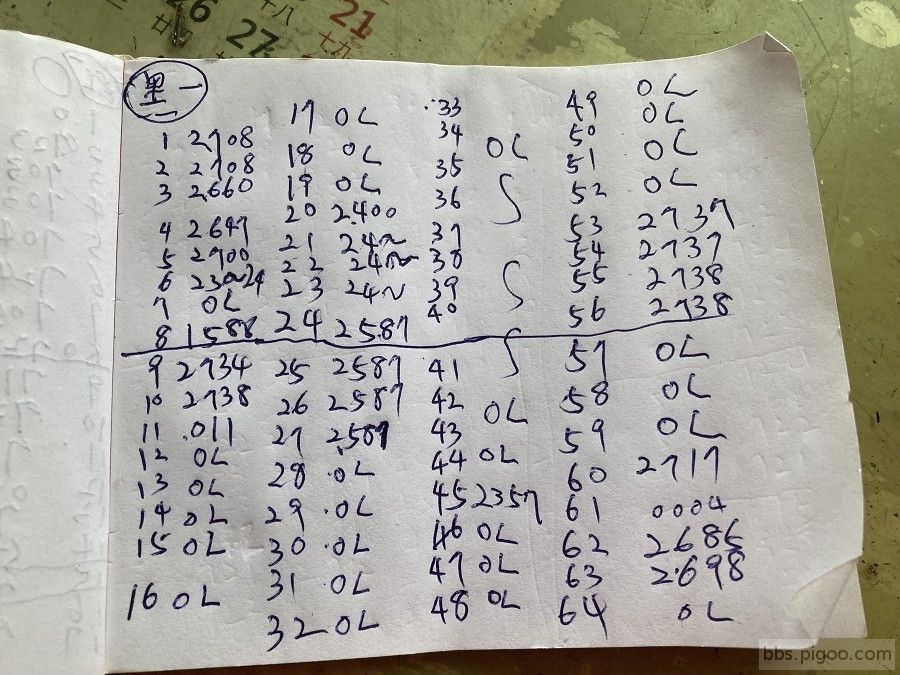 26 十八 21
廿 27 十九
黑一
1 2.708
2 2.708
3 2.660
4 2647
5 2700
6
7 OL
8 1588
9 2734
10 2738
11 .011
12 OL
13 OL
14 OL
15 OL
16 OL
17 OL
18 OL
19 OL
20 2.400
21 24~
22
23 24~
24 2587
25 2587
26 2587
27 2.587
28 OL
29 .OL
30 .OL
31 OL
32 OL
33
34 OL
35
36
37
38
39
40
41
42 OL
43
44 OL
45 2357
46 OL
47 OL
48 OL
49 OL
50 OL
51 OL
52 OL
53 2737
54 2737
55 2738
56 2738
57 OL
58 OL
59 OL
60 2717
61 0004
62 2686
63 2.698
64 OL
bbs.pigoo.com